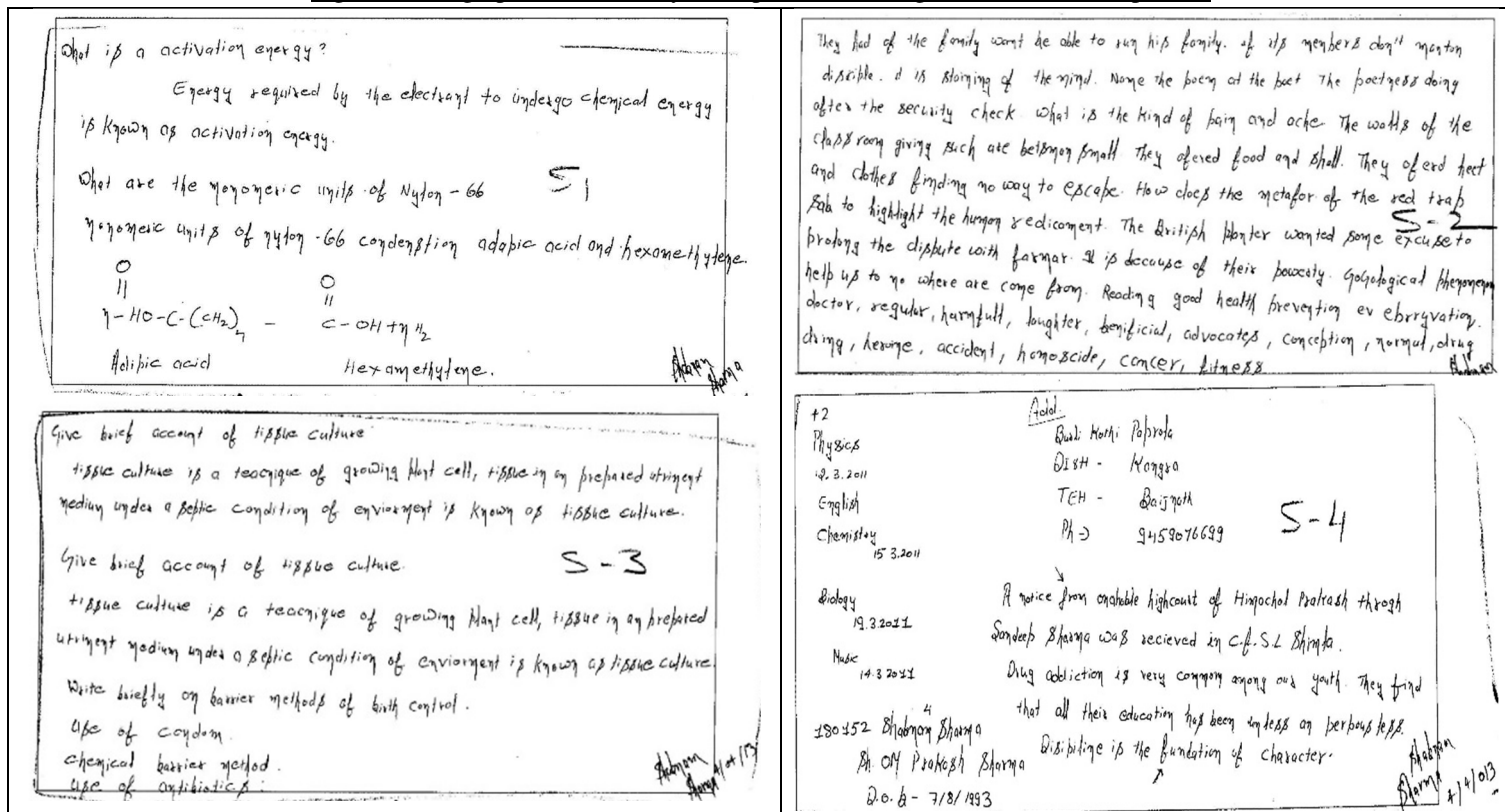 What is a activation energy?
Energy required by the electrant to undergo chemical energy
is known as activation energy.
What are the monomeric units of Nylon - 66
S1
monomeric units of nylon -66 condenstion adapic acid and hexamethylene.
O O
|| ||
n-HO-C-(CH2)n - C-OH+nH2
Adipic acid Hexamethylene.
Shabnam
Sharma
They had of the family wont be able to run his family. of its members don't
disciple. it is staining of the mind. Name the poem at the poet The poetness doing
after the security check what is the kind of pain and ache The walls of the
class room giving such are small. They ofered food and shall. They oferd
and clothes finding no way to escape. How does the metafor of the red trap
to highlight the human redicoment. The British planter wanted some excuse to
S-2
prolong the dispute with farmar. It is because of their powerty. phenomenon
help us to no where are come from. Reading good health prevention ev
doctor, regular, harmfull, laughter, benificial, advocates, conception, normal, drug
ding, heroine, accident, homoscide, cancer, fitness
Give brief account of tissue culture
tissue culture is a teacnique of growing plant cell, tissue in an prepared utriment
medium under a septic condition of enviorment is known as tissue culture.
Give brief account of tissue culture.
S-3
tissue culture is a teacnique of growing plant cell, tissue in an prepared
utriment medium under a septic condition of enviorment is known as tissue culture
Write briefly on barrier methods of birth control.
use of condom.
chemical barrier method.
use of antibiotics.
Shabnam
Sharma
+2
Physics
12.3.2011
English
Chemistry
15 3.2011
Biology
19.3.2011
Music
14.3 2011
180152 Shabnam Sharma
Sh. OM Prakash Sharma
D.o.b - 7/8/1993
Add.
Kothi Paprola
Distt - Kangra
TEH - Baijnath
Ph -> 9459076699
S-4
A notice from onarable highcourt of Himachal Prakash throgh
Sandeep Sharma was recieved in C.f.S.L Shimla.
Drug addiction is very common among our youth. They find
that all their education has been unless an perpousless.
Disipiline is the fundation of character.
Shabnam
Sharma